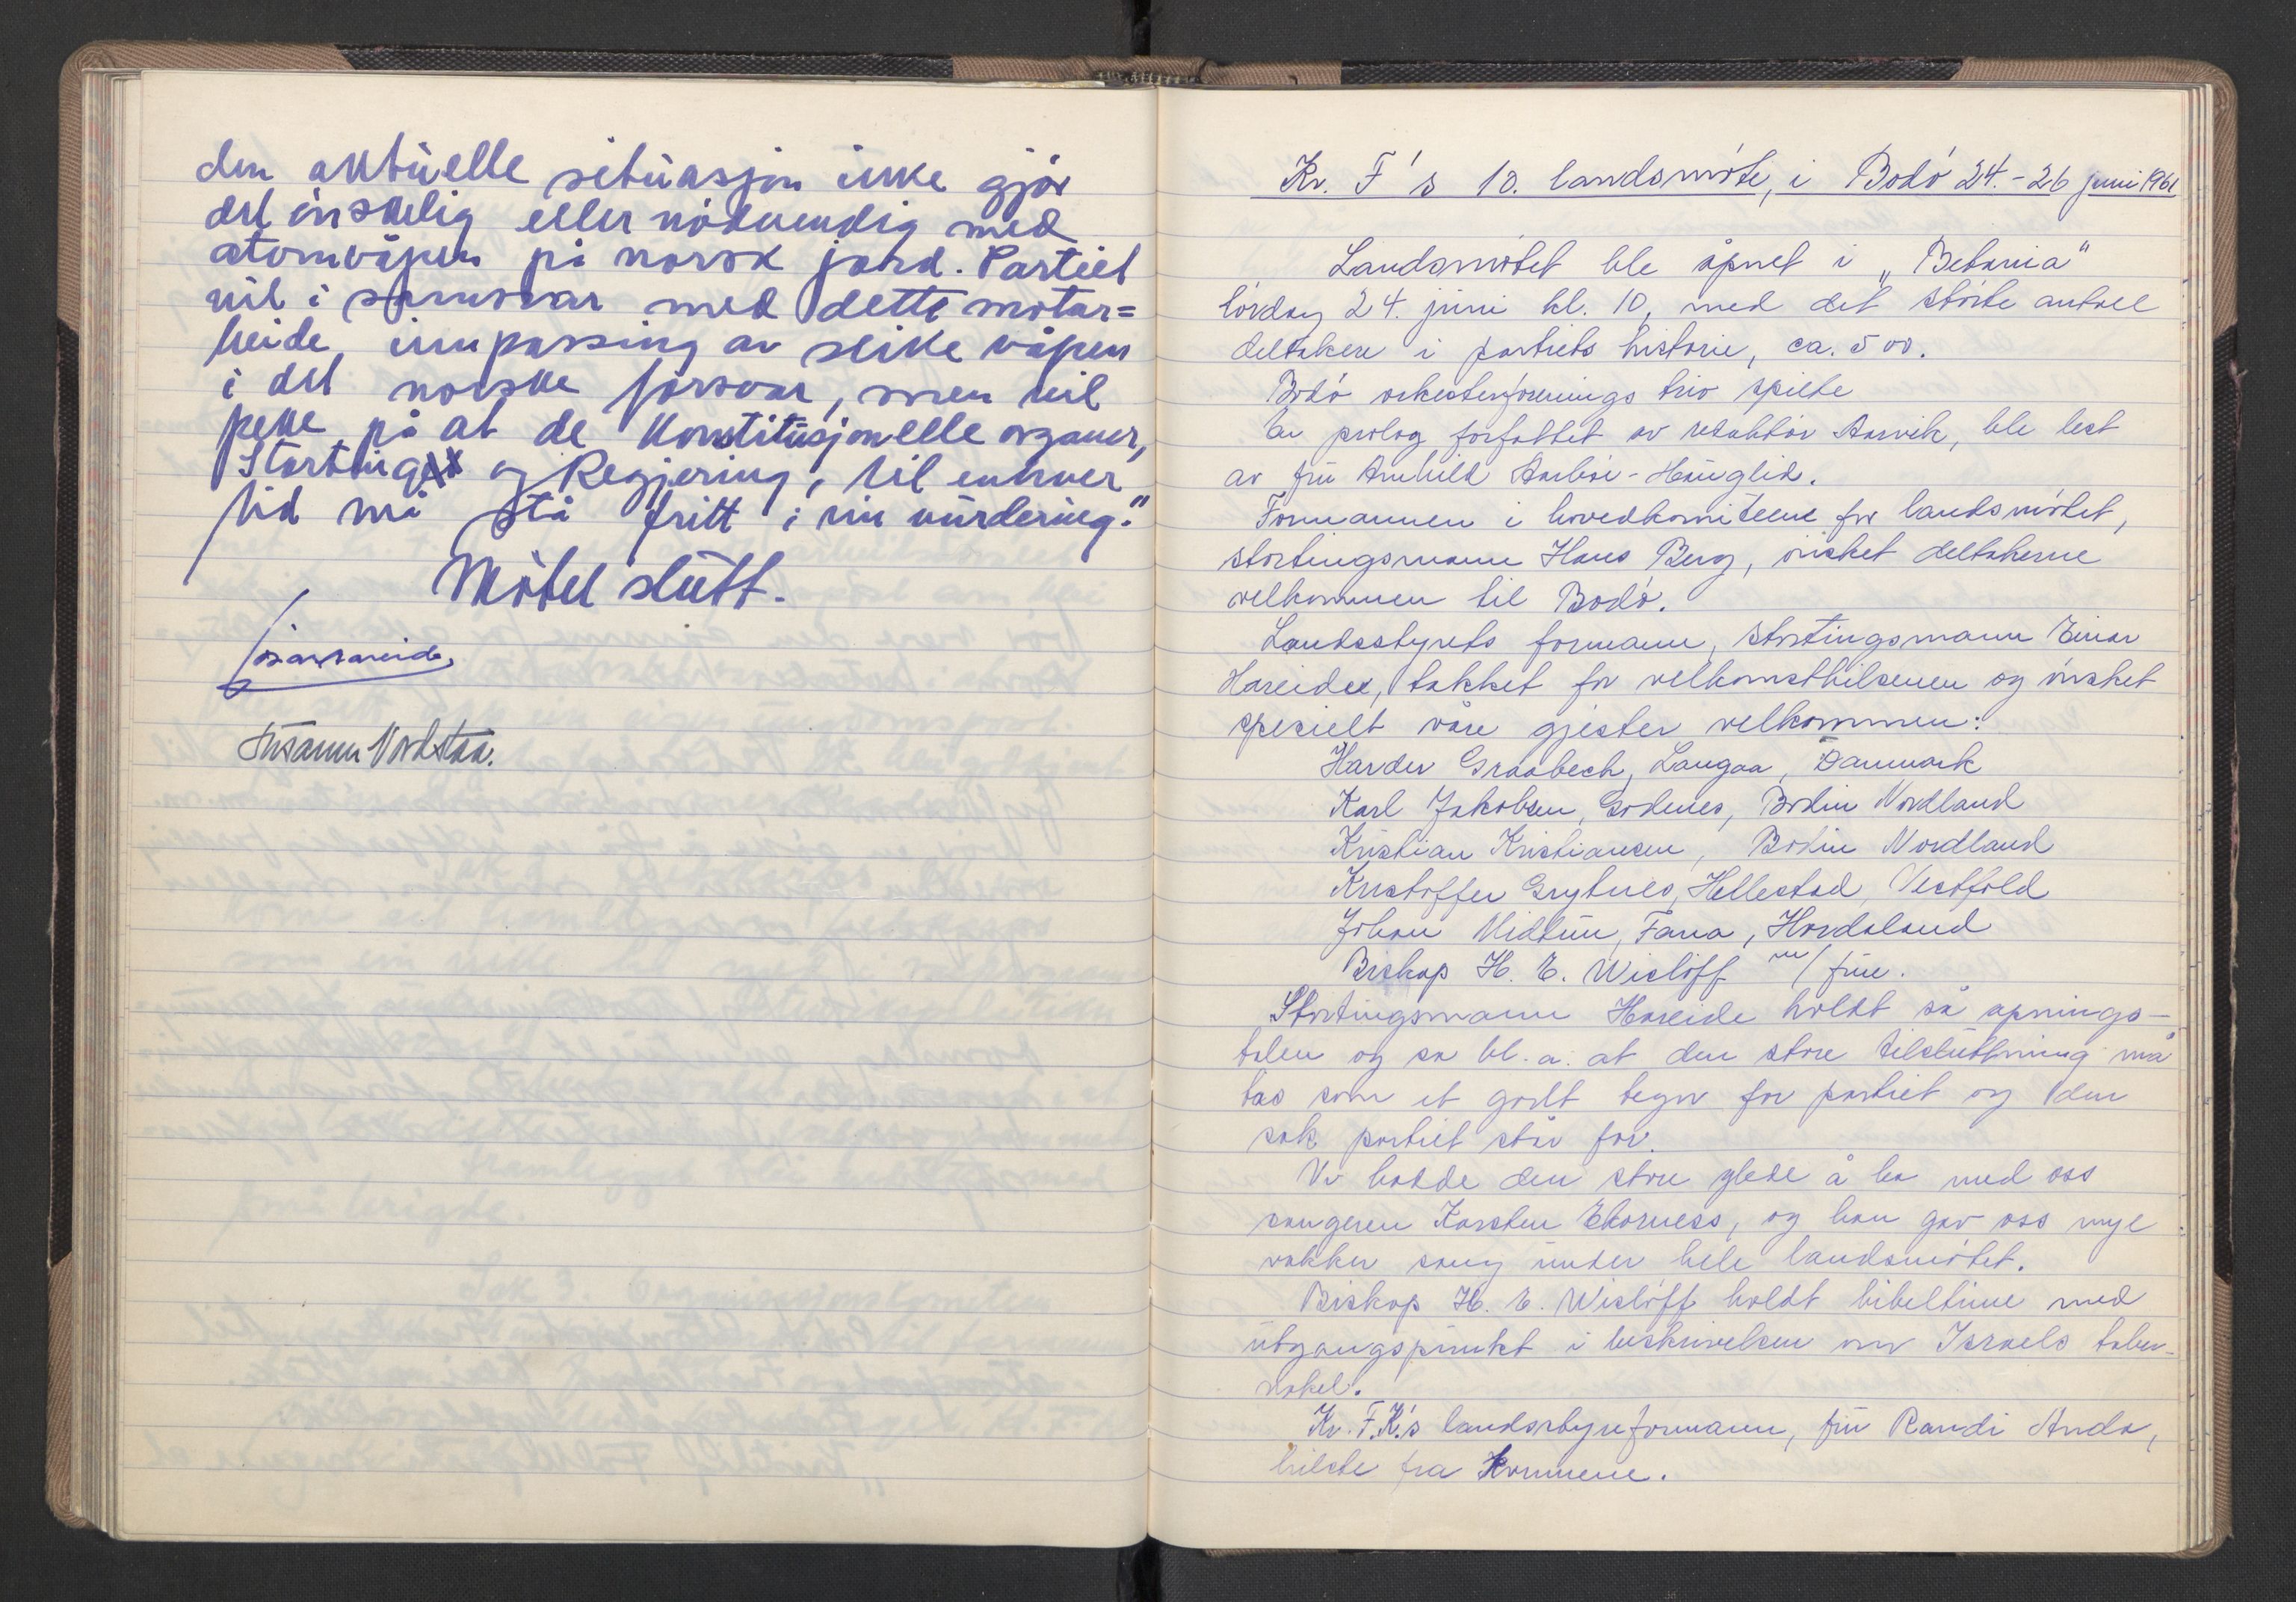 den aktuelle situasjon ikke gjör
det önskelig eller nödvendig med
atomvåpen på norsk jord. Partiet
vil i samsvar med dette motar=
beide innpassing av slike våpen
i det norske forsvar, men vil
peke på at de Konstitusjonelle organer,
Storting og Regjering, til enhver
tid må stå fritt i sin vurdering."
Mötet slutt.
Susanne Nordstaa.
Kr. F's 10. landsmöte, i Bodö 24.-26 juni 1961
Landsmötet ble åpnet i „Betania"
lördag 24. juni kl. 10, med det störste antall
deltakere i partiets historie, ca. 500.
Bodö orkesterforenings trio spilte
En prolog forfattet av redaktör Aasvik, ble lest
av fru Arnhild Aarböe-Hauglid.
Formannen i hovedkomiteene for landsmötet,
stortingsmann Hans Berg, önsket deltakerne
velkommen til Bodö.
Landsstyrets formann, stortingsmann Einar
Hareide, takket for velkomsthilsenen og önsket
spesielt våre gjester velkommen:
Harder Graabech, Langaa, Danmark
Karl Jakobsen, Godenes, Bodin Nordland
Kristian Kristiansen, Bodin Nordland
Kristoffer Grytnes, Hillestad, Vestfold
Johan Midttun, Fana, Hordaland
Biskop H. E. Wislöff m/ frue.
Stortingsmann Hareide holdt så åpnings-
talen og sa bl.a. at den store tilslutning må
tas som et godt tegn for partiet og den
sak partiet står for.
Vi hadde den store glede å ha med oss
sangeren Karsten Ekorness, og han gav oss mye
vakker sang under hele landsmötet.
Biskop H. E. Wislöff holdt bibeltime med
utgangspunkt i beskrivelsen om Israels taber-
nakel.
Kr. F.K's landsstyreformann, fru Randi Anda,
hilste fra Kvinnene.